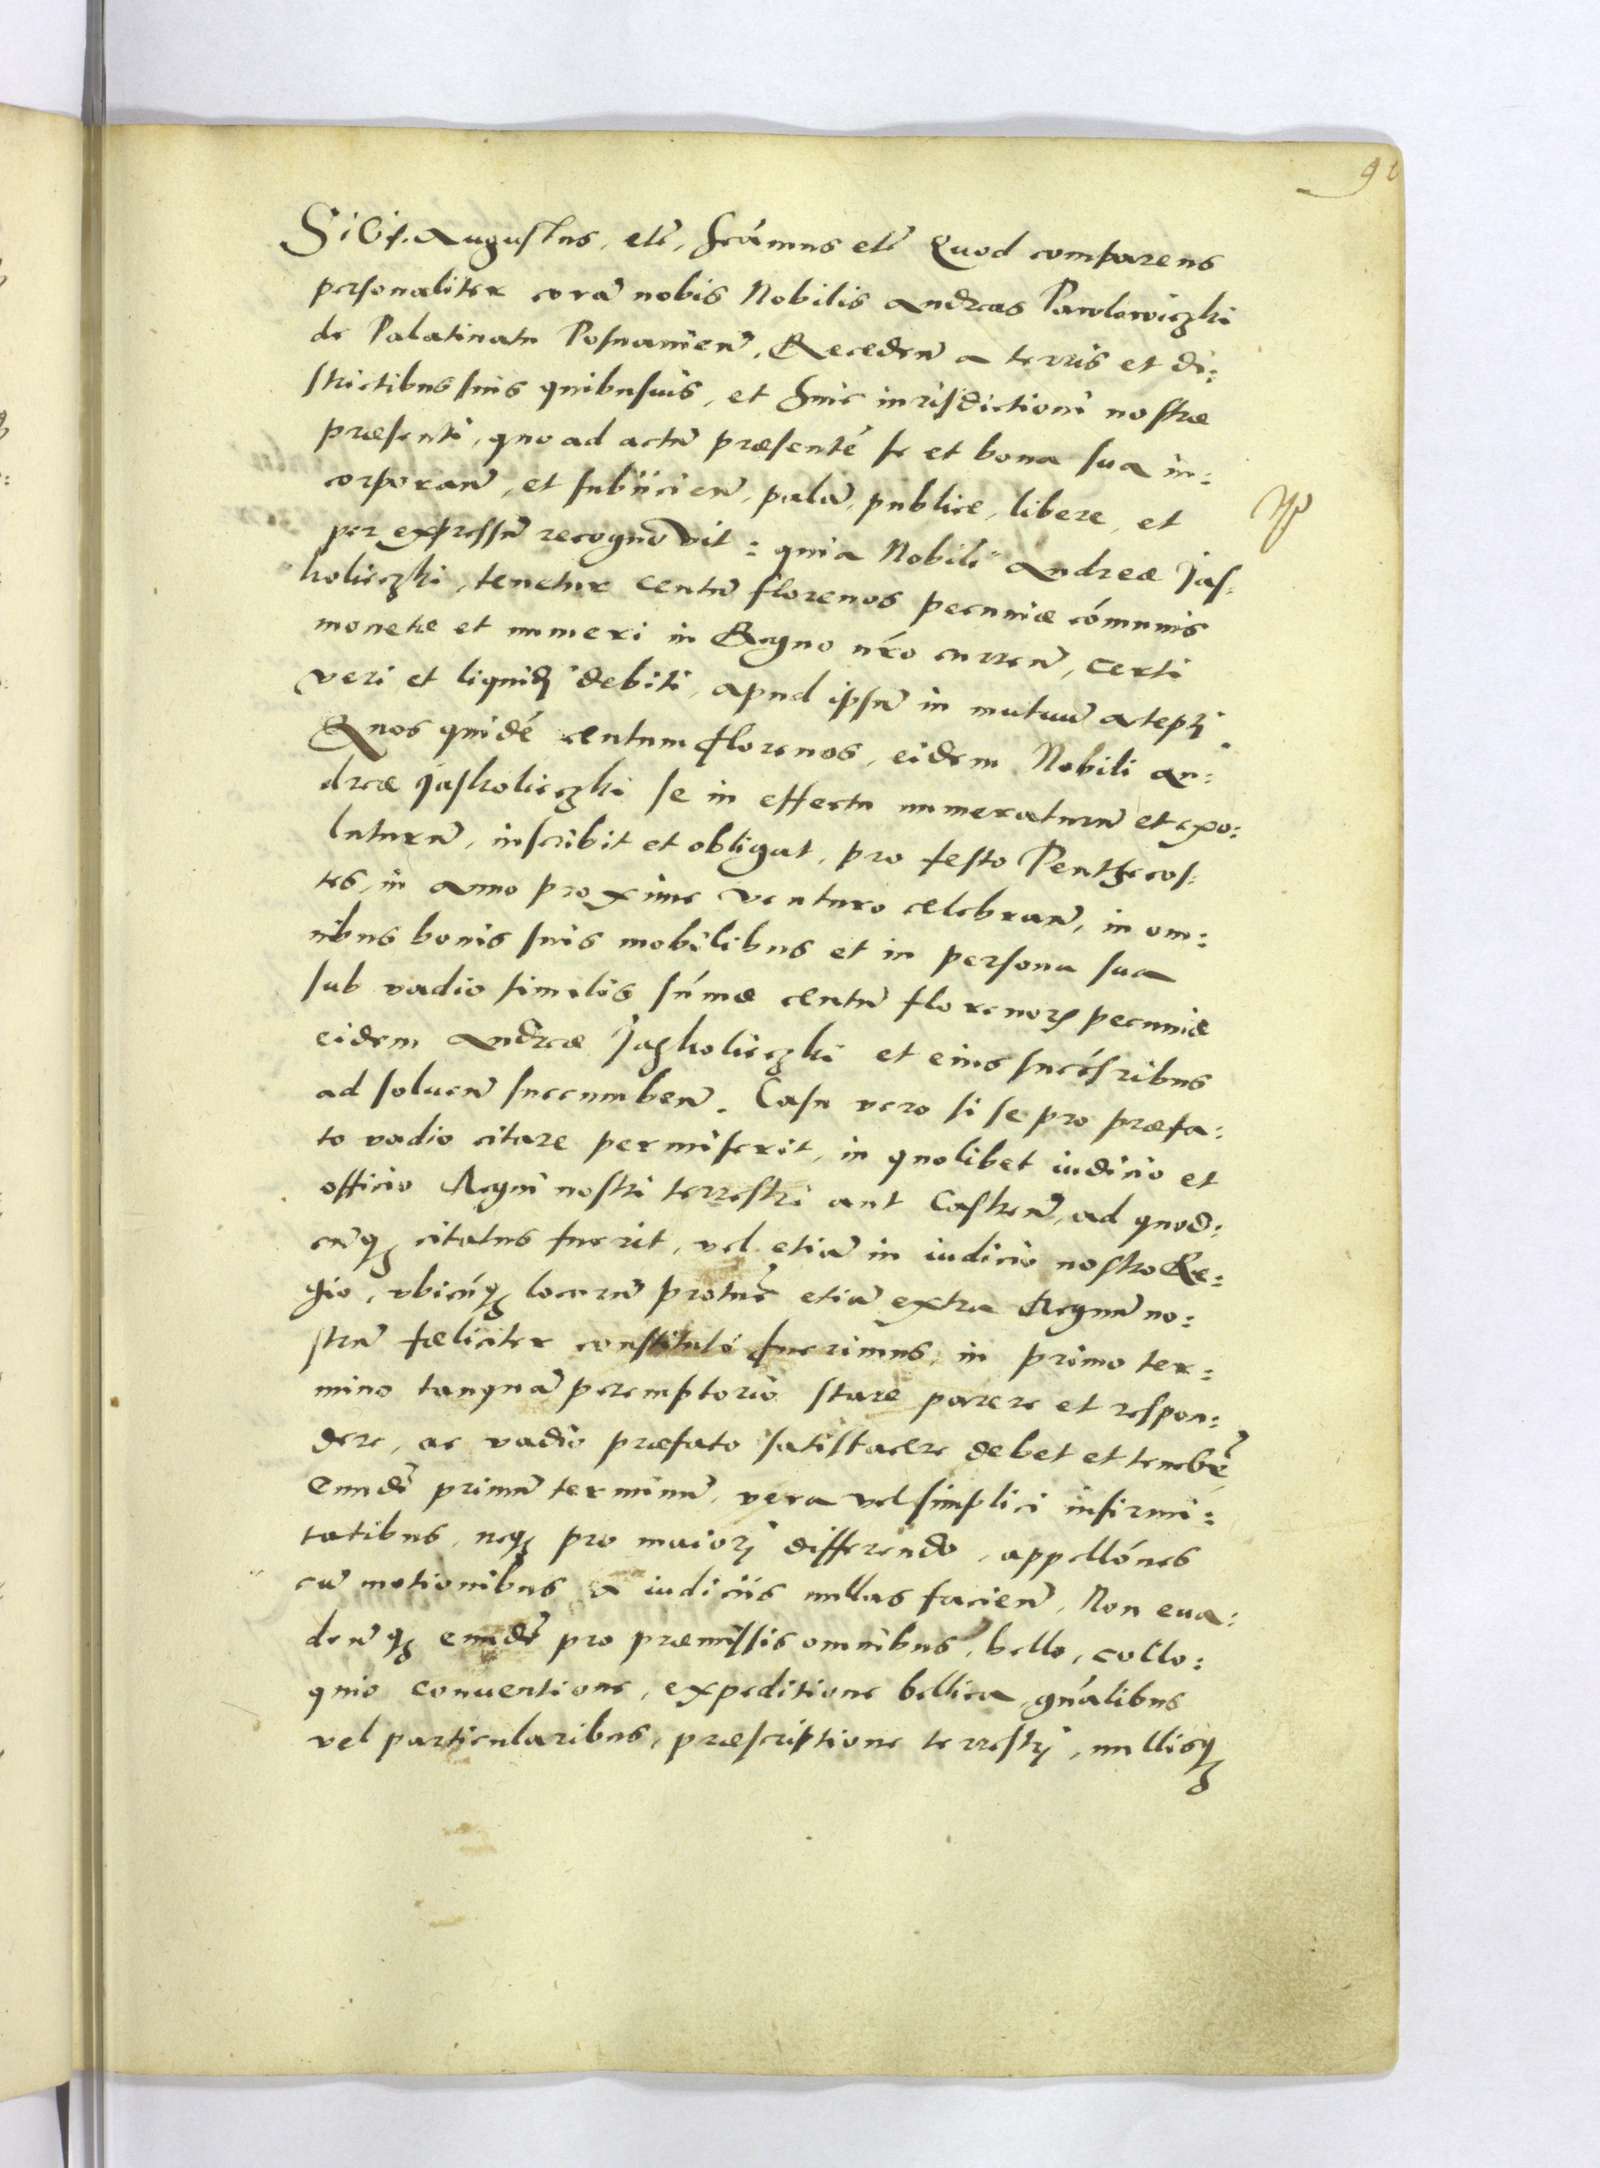 Sigis. Augustus, etc̃, scámus etc̃ Quod comparens
personaliter corã nobis Nobilis Andreas Pawlowiczki
de Palatinatu Posnanien̄, Receden̄ a terris et di:
strictibus suis quibusuis, et huic iurisdictioni nostræ
præsenti, quo ad actũ præsenté se et bona sua in:
corporan̄, et subiicien̄, palã, publice, libere, et
per expressũ recognovit: quia Nobili Andreæ Jas:
koliczki, tenetur centũ florenos pecuniæ cómunis
monetæ et numeri in Regno nŕo curren̄, certi
veri et liquidi debiti, apud ipsũ in mutuũ accepti.
Quos quidé centum florenos, eidem Nobili An:
dreæ Jaskoliczki se in effectu numeraturũ et exo:
luturũ, inscribit et obligat, pro festo Penthecos:
tes, in anno proxime venturo celebran̄, in om:
nibus bonis suis mobilibus et in persona sua
sub vadio similis súmæ centũ florenorꝝ pecuniæ
eidem Andreæ Jaskoliczki et eius succésribus
ad soluen̄ succumben̄. Casu vero si se pro præfa:
to vadio citare permiserit, in quolibet iudicio et
officio Regni nostri terrestri aut Castren̄, ad quod:
cũqꝫ citatus fuerit, vel etiã in iudicio nostro Re:
gio, vbicúqꝫ locorũ protuc̃ etiã extra Regnũ no:
strũ fæliciter constituti fuerimus, in primo ter:
mino tanquã peremptorio stare parere et respon:
dere, ac vadio præfato satisfacere debet et tenebẽ,
Eundẽ primũ terminũ, vera vel simplici infirmi:
tatibus, neqꝫ pro maiori differendo, appellónes
cũ motionibus a iudiciis nullas facien̄, Non eua:
den̄qꝫ eundẽ pro præmissis omnibus, bello, collo:
quio conuentione, expeditione bellica, gńalibus
vel particularibus, præscriptione terrestri, nullisqꝫ